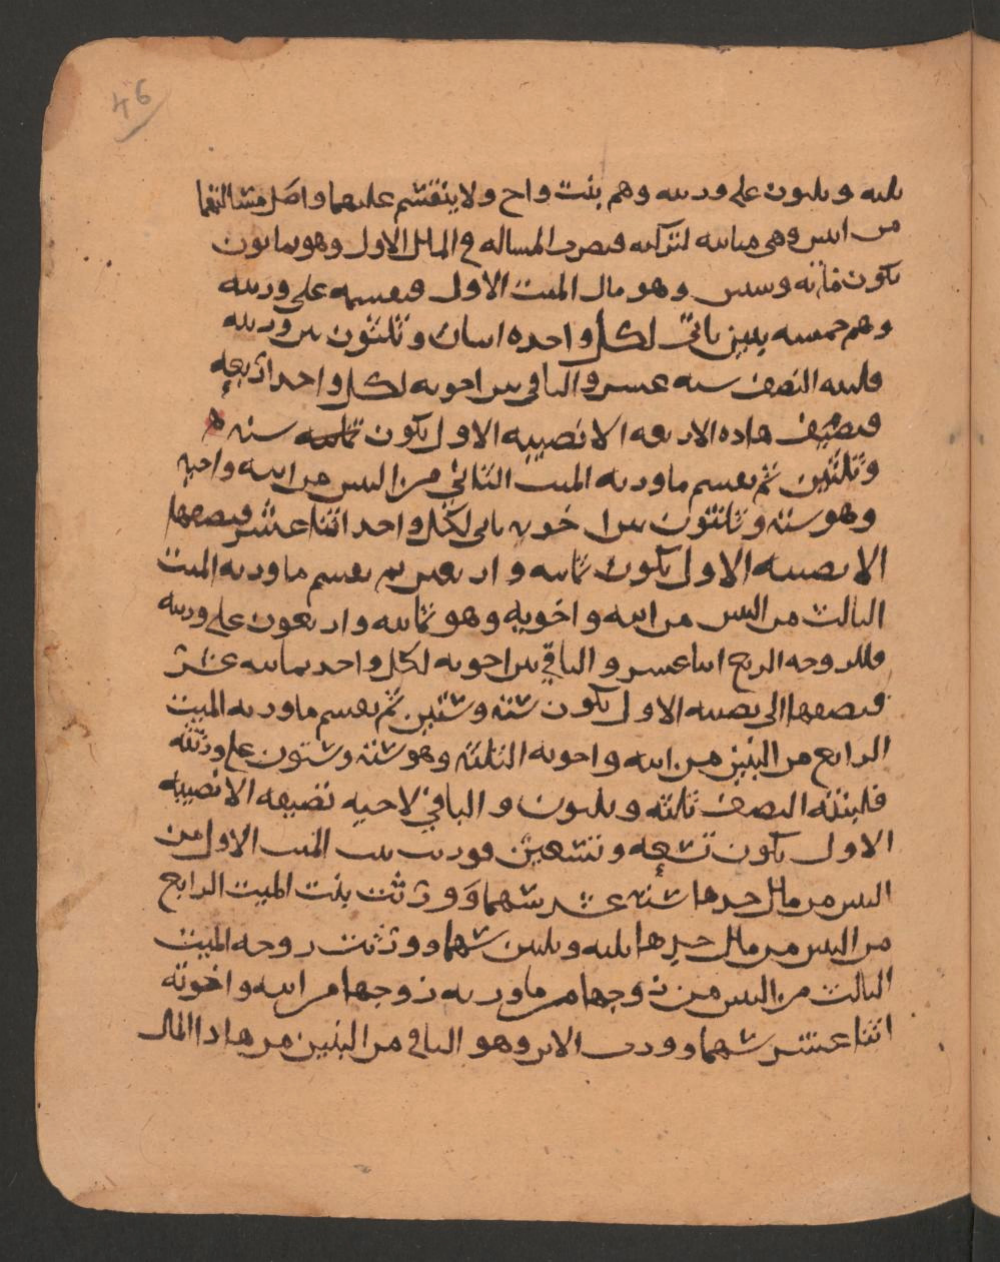 46
ثلثه وثلثون على ورثته وهم بنت واخ ولا ينقسم عليهما واصل مسالتهما
من اثنين وهى مباينه لتركته فتضرب المساله في المال الاول وهو ثمانون
تكون مائه وستين وهو مال الميت الاول فتقسمه على ورثته
وهم خمسه بنين ياتى لكل واحده اثنان وثلثون بين ورثته
فلبنته النصف سته عشر والباقي بين اخوته لكل واحد اربعه
فتضيف هاده الاربعه الا نصيبه الاول تكون سته
وثلثين ثم تقسم ما ورثه الميت الثاني من البنين من ابيه واخيه
وهو سته وثلثون بين اخوته ياتى لكل واحد اثنا عشر فتضيفها
الا نصيبه الاول تكون ثمانيه واربعين ثم تقسم ما ورثه الميت
الثالث من البنين من ابيه واخويه وهو ثمانيه واربعون على ورثته
فللزوجه الربع اثنا عشر والباقي بين اخوته لكل واحد ثمانيه عشر
فتضيفها الى نصيبه الاول تكون سته وستين ثم تقسم ما ورثه الميت
الرابع من البنين من ابيه واخوته الثلثه وهو سته وستون على ورثته
فلبنته النصف ثلثه وثلثون والباقي لاخيه تضيفه الا نصيبه
الاول تكون تسعه وتسعين فورثت بنت الميت الاول من
البنين من مال جدها سته عشر سهما وورثت بنت الميت الرابع
من البنين من مال جدها ثلثه وثلثين سهما وورثت زوجه الميت
الثالث من البنين من زوجها مما ورثه زوجها من ابيه واخوته
اثنا عشر سهما وورث الابن وهو الباقي من البنين من هادا المال